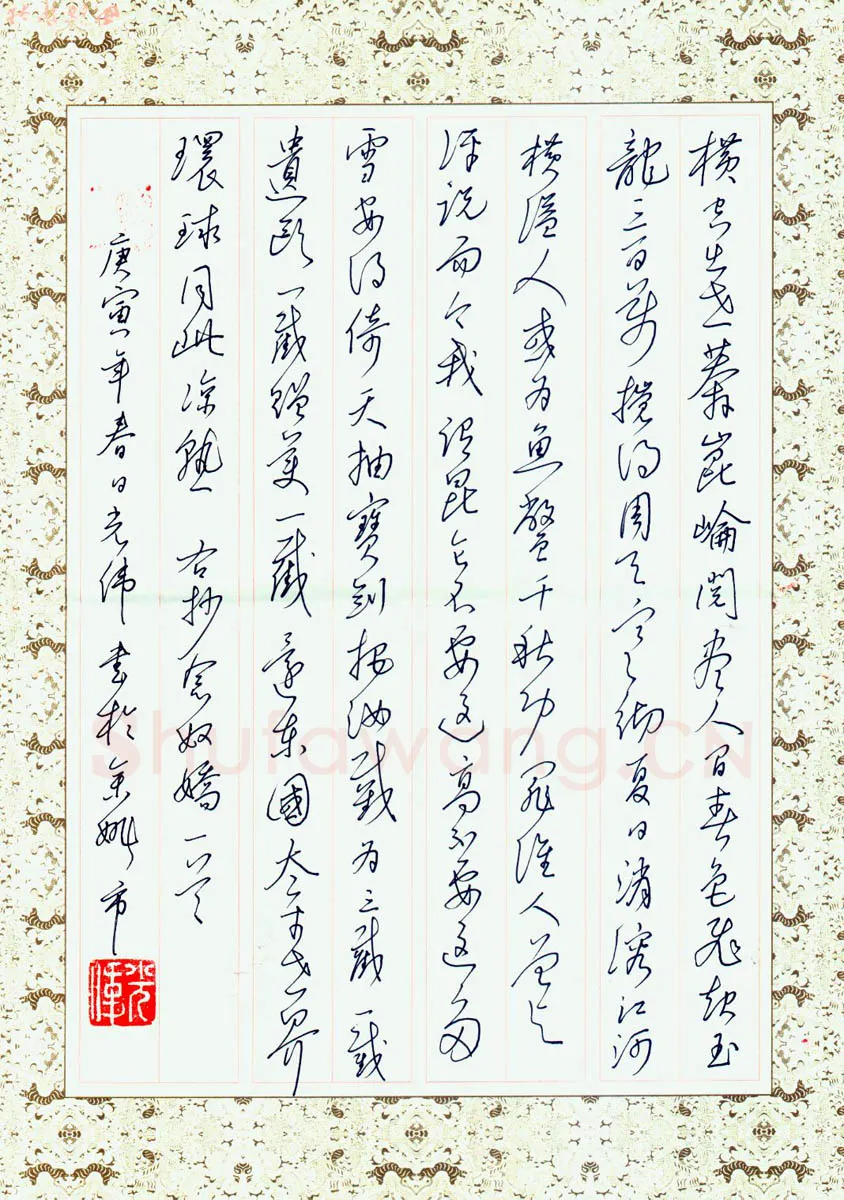 橫空出世莽崑崘閱尽人间春色飛起玉
龍三百萬攪得周天寒彻夏日消溶江河
橫溢人或为魚鳖千秋功罪谁人曾与
评说而今我谓昆仑不要这高不要这多
雪安得倚天抽寶劍把汝裁为三截一截
遺欧一截赠美一截還东國太平世界
環球同此凉熱 右抄念奴嬌一首
庚寅年春日光伟书於余姚市
光偉
Shufawang.CN